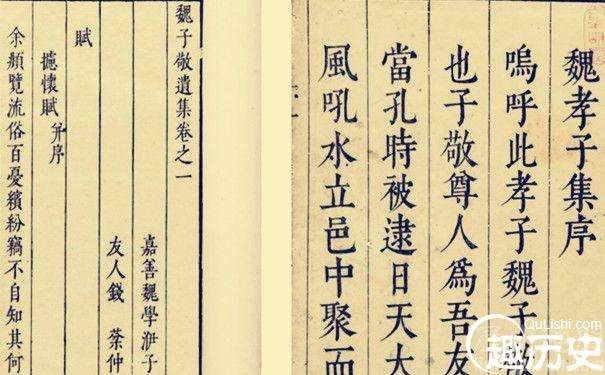 魏孝子集序
嗚呼此孝子魏子
也子敬尊人爲吾友
當孔時被逮日天大
風吼水立邑中聚而
魏子敬遺集卷之一
嘉善魏學洢子
友人錢 棻仲
賦
攄懷賦 并序
余頫覽流俗百憂繽紛竊不自知其何
QuLishi.com
趣历史